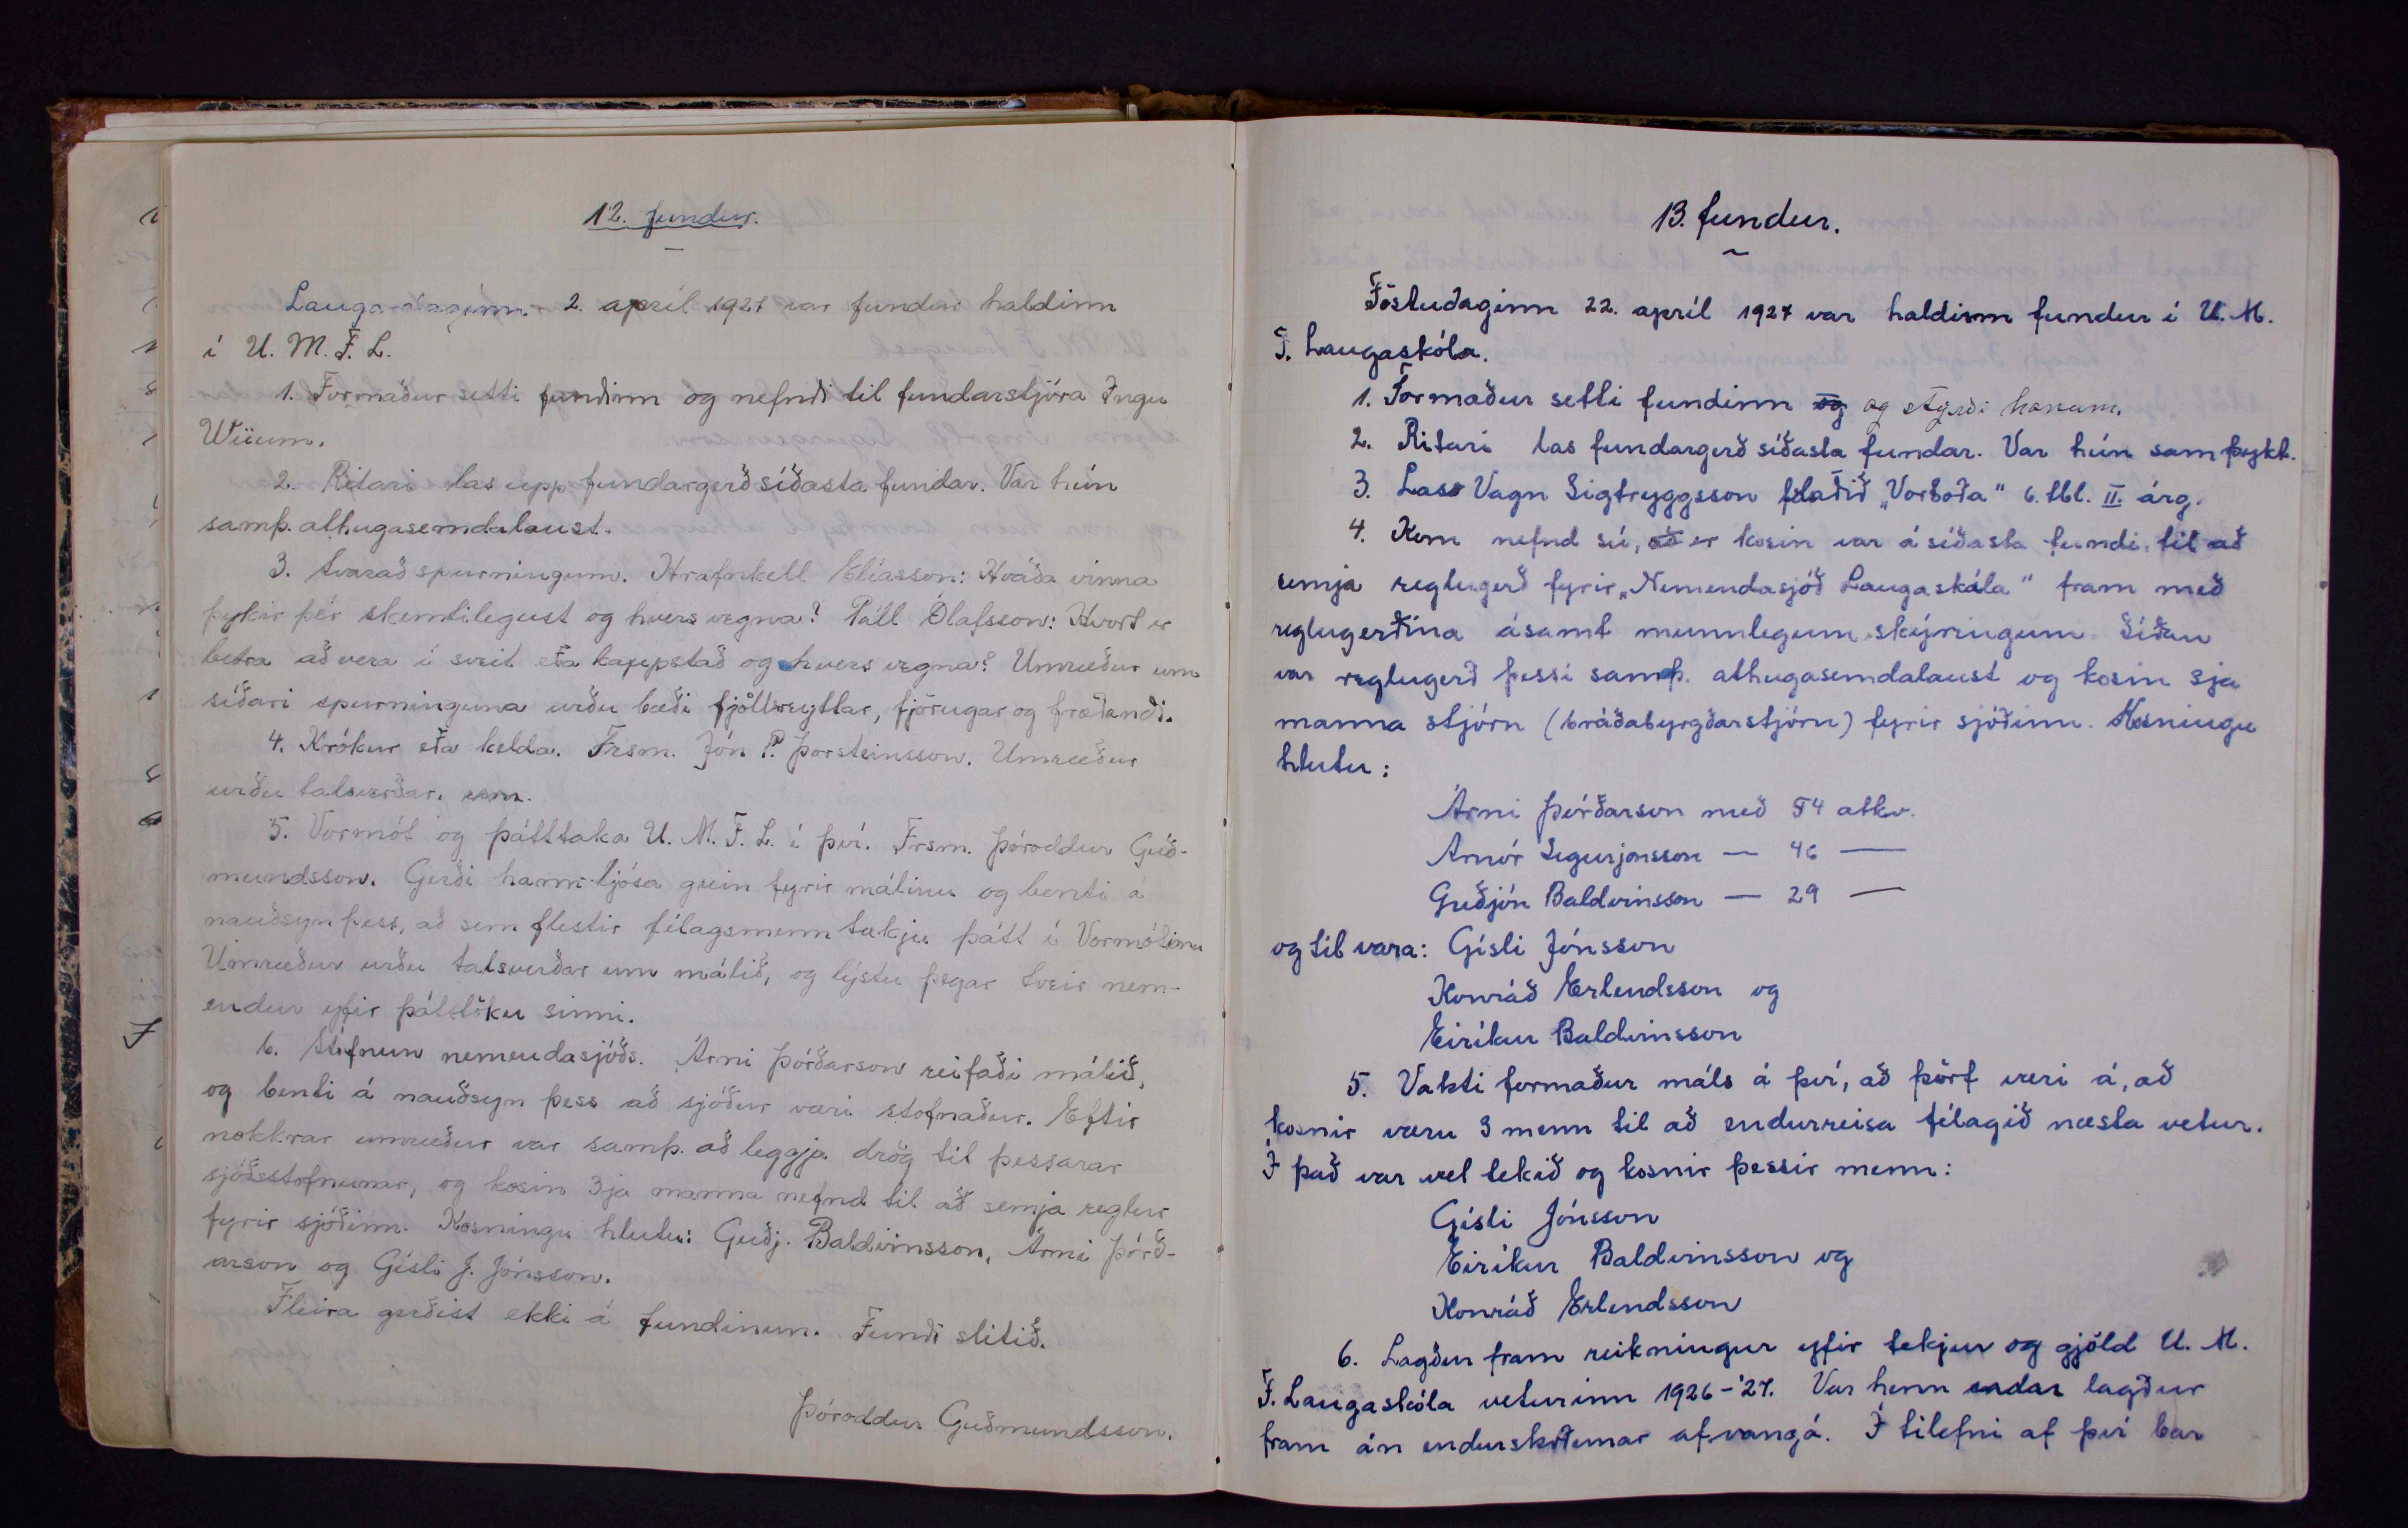 12. fundur.
Laugardaginn 2. apríl 1927 var fundur haldinn
í U. M. F. L.
1. Formaður setti fundinn og nefndi til fundarstjóra Ingu
Wíum.
2. Ritari las upp fundargerð síðasta fundar. Var hún
samþ. athugasemdalaust.
3. Svarað spurningum. Hrafnkell Elíasson: Hvaða vinna
þykir þér skemtilegust og hvers vegna? Páll Ólafsson: Hvort er
betra að vera í sveit eða kaupstað og hvers vegna? Umræður um
síðari spurninguna urðu bæði fjölbreyttar, fjörugar og fræðandi.
4. Krókur eða kelda. Frsm. Jón P. Þorsteinsson. Umræður
urðu talsverðar. um.
5. Vormót og þátttaka U. M. F. L. í því. Frsm. Þóroddur Guð-
mundsson. Gerði hann ljósa grein fyrir málinu og benti á
nauðsyn þess, að sem flestir félagsmenn tækju þátt í Vormótinu
Umræður urðu talsverðar um málið, og lýstu þegar tveir nem-
endur yfir þátttöku sinni.
6. Stofnun nemendasjóðs. Árni Þórðarson reifaði málið,
og benti á nauðsyn þess að sjóður væri stofnaður. Eftir
nokkrar umræður var samþ. að leggja drög til þessarar
sjóðsstofnunar, og kosin 3ja manna nefnd til að semja reglur
fyrir sjóðinn. Kosningu hlutu: Guðj. Baldvinsson, Árni Þórð-
arson og Gísli J. Jónsson.
Fleira gerðist ekki á fundinum. Fundi slitið.
Þóroddur Guðmundsson.
13. fundur.
Föstudaginn 22. apríl 1927 var haldinn fundur í U. M.
F. Laugaskóla.
1. Formaður setti fundinn og og stýrði honum.
2. Ritari las fundargerð síðasta fundar. Var hún samþykt.
3. Las Vagn Sigtryggsson blaðið „Vorboða" 6. tbl. II. árg.
4. Kom nefnd sú, að er kosin var á síðasta fundi til að
semja reglugerð fyrir „Nemendasjóð Laugaskóla" fram með
reglugerðina ásamt munnlegum skýringum. Síðan
var reglugerð þessi samþ. athugasemdalaust og kosin 3ja
manna stjórn (bráðabyrgðarstjórn) fyrir sjóðinn. Kosningu
hlutu:
Árni Þórðarson með 54 atkv.
Arnór Sigurjónsson — 46 —
Guðjón Baldvinsson — 29 —
og til vara: Gísli Jónsson
Konráð Erlendsson og
Eiríkur Baldvinsson
5. Vakti formaður máls á því, að þörf væri á, að
kosnir væru 3 menn til að endurreisa félagið næsta vetur.
Í það var vel tekið og kosnir þessir menn:
Gísli Jónsson
Eiríkur Baldvinsson og
Konráð Erlendsson
6. Lagður fram reikningur yfir tekjur og gjöld U. M.
F. Laugaskóla veturinn 1926-'27. Var hann lagður
fram án endurskoðunar af vangá. Í tilefni af því bar